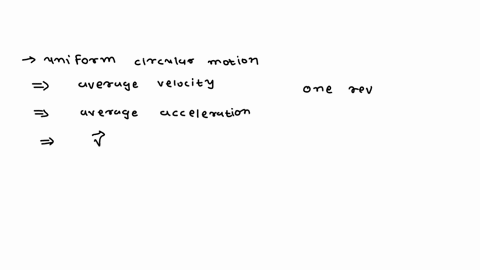 → uniform circular motion
⇒ average velocity
one rev
⇒ average acceleration
⇒ v⃗